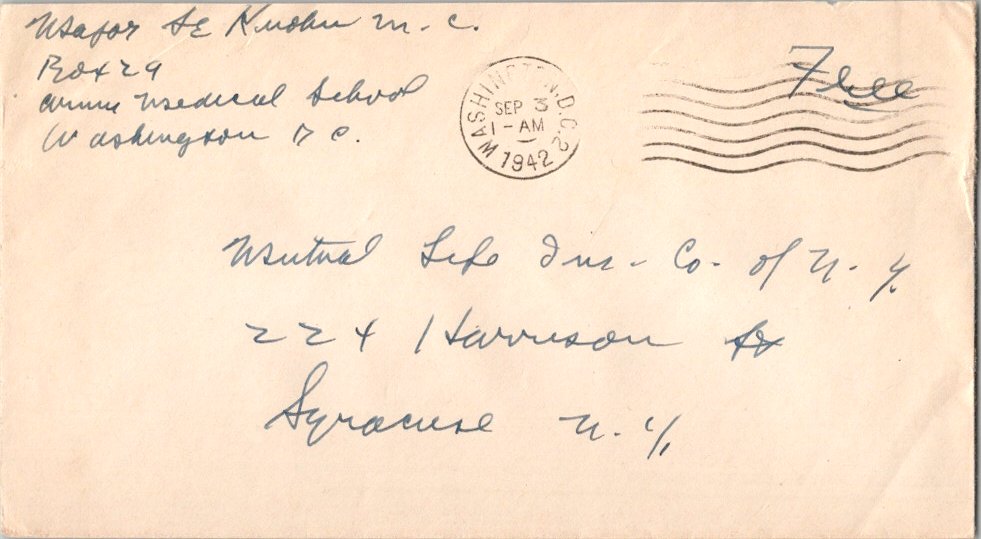 Major SE Kuohn M. C.
Box 29
Army Medical School
Washington D C.
WASHINGTON, D.C. 2
SEP 3
1 - AM
1942
Free
Mutual Life Ins. Co. of N. Y.
224 Harrison St
Syracuse N. Y.